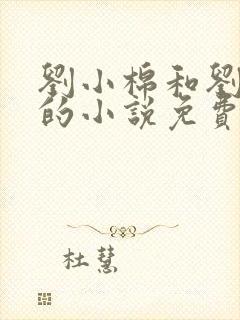 劉小棉和劉
的小說免費
杜慧